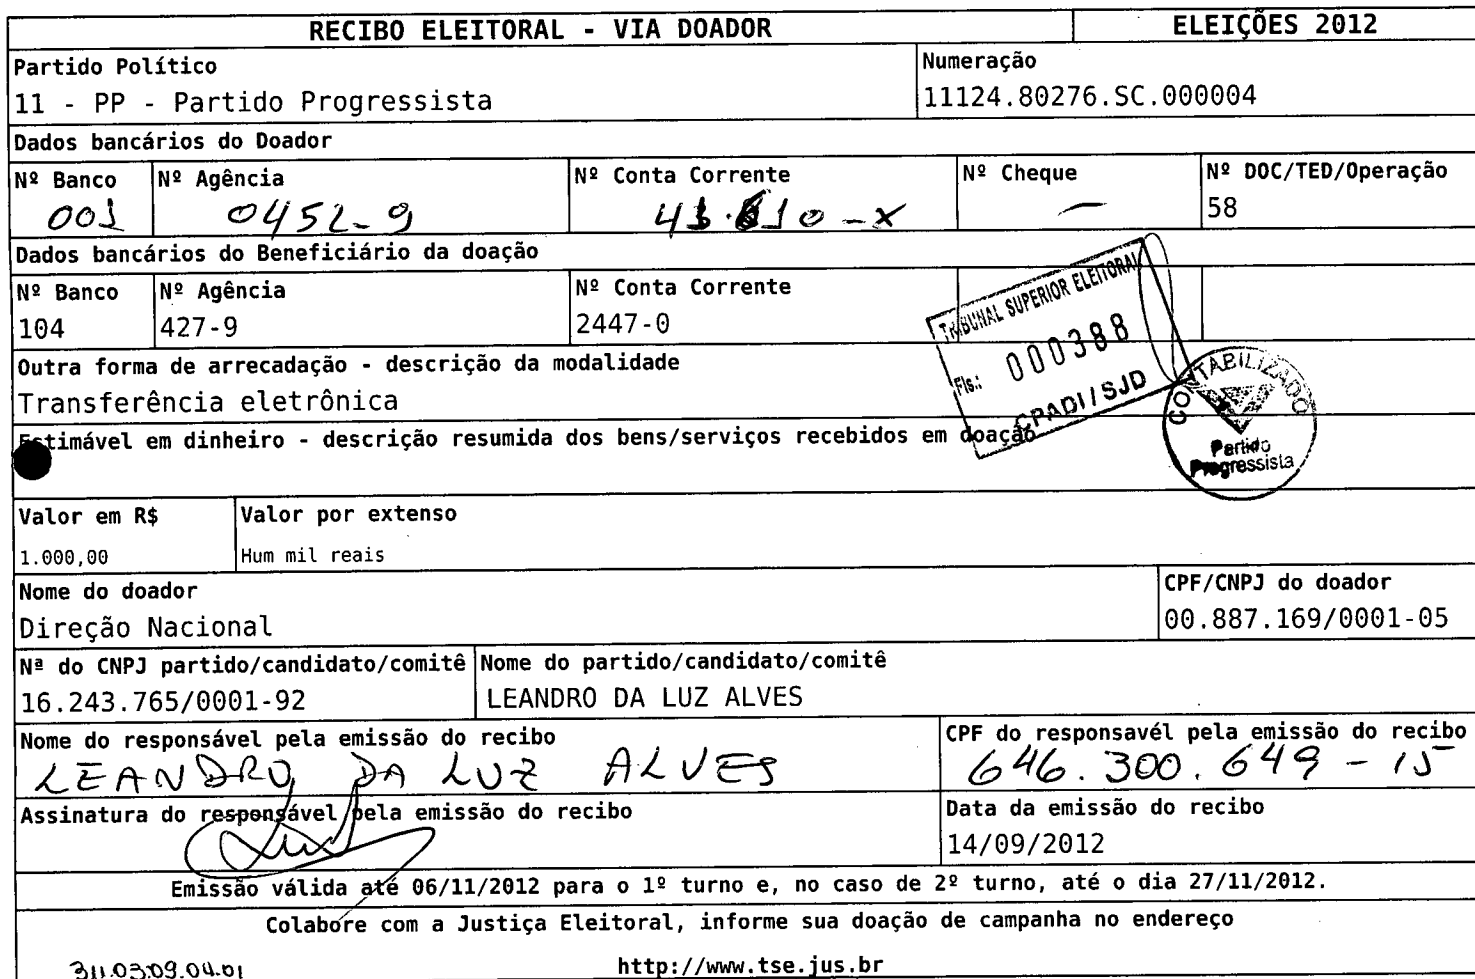 RECIBO ELEITORAL - VIA DOADOR ELEIÇÕES 2012
Partido Político Numeração
11 - PP - Partido Progressista 11124.80276.SC.000004
Dados bancários do Doador
Nº Banco Nº Agência Nº Conta Corrente Nº Cheque Nº DOC/TED/Operação
001 0452-9 — 58
Dados bancários do Beneficiário da doação
Nº Banco Nº Agência Nº Conta Corrente
104 427-9 2447-0
TRIBUNAL SUPERIOR ELEITORAL
Fls.: 000388
CPADI/SJD
Outra forma de arrecadação - descrição da modalidade
Transferência eletrônica
CONTABILIZADO
Partido
Progressista
Estimável em dinheiro - descrição resumida dos bens/serviços recebidos em doação
Valor em R$ Valor por extenso
1.000,00 Hum mil reais
Nome do doador CPF/CNPJ do doador
Direção Nacional 00.887.169/0001-05
Nª do CNPJ partido/candidato/comitê Nome do partido/candidato/comitê
16.243.765/0001-92 LEANDRO DA LUZ ALVES
Nome do responsável pela emissão do recibo CPF do responsavél pela emissão do recibo
LEANDRO DA LUZ ALVES 646.300.649-15
Assinatura do responsável pela emissão do recibo Data da emissão do recibo
14/09/2012
Emissão válida até 06/11/2012 para o 1º turno e, no caso de 2º turno, até o dia 27/11/2012.
Colabore com a Justiça Eleitoral, informe sua doação de campanha no endereço
311.03.09.04.01 http://www.tse.jus.br